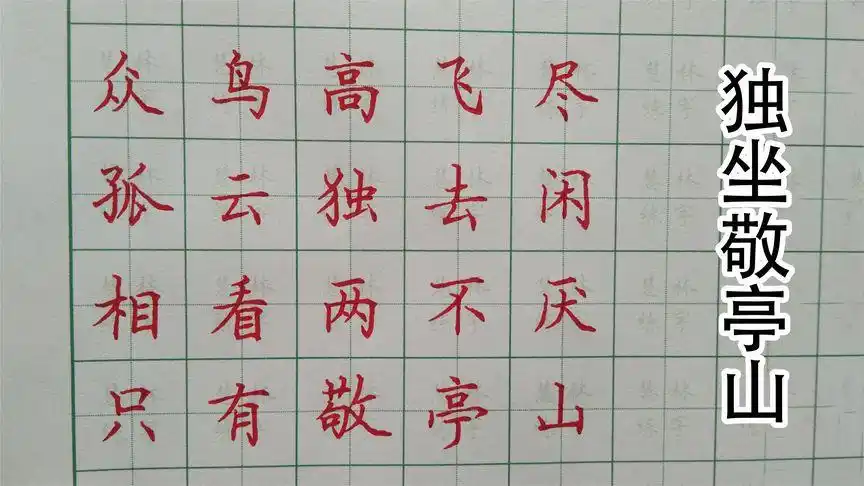 众鸟高飞尽
孤云独去闲
相看两不厌
只有敬亭山
独坐敬亭山